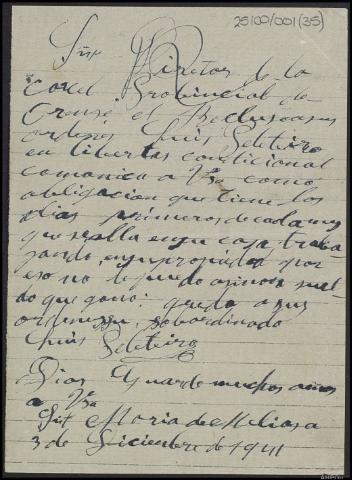 25/00/001(35)
Sñr Diretor de la
Carcel Provincial de
Orense el Reclusoasus
ordenes Luis Seleteiro
en libertas condicional
comunica a Vsa como
obligacion que tiene los
dias primeros de cada mes
que se alla en su casa traba
jando, en su propiedad por
eso no le puedo asinar suel
do que gano: quedo a sus
ordenes su sobordinado
Luis Seleteiro
Dios Guarde muchos años
a Vsa
Sta Maria de Melias a
3 de Diciembre de 1941